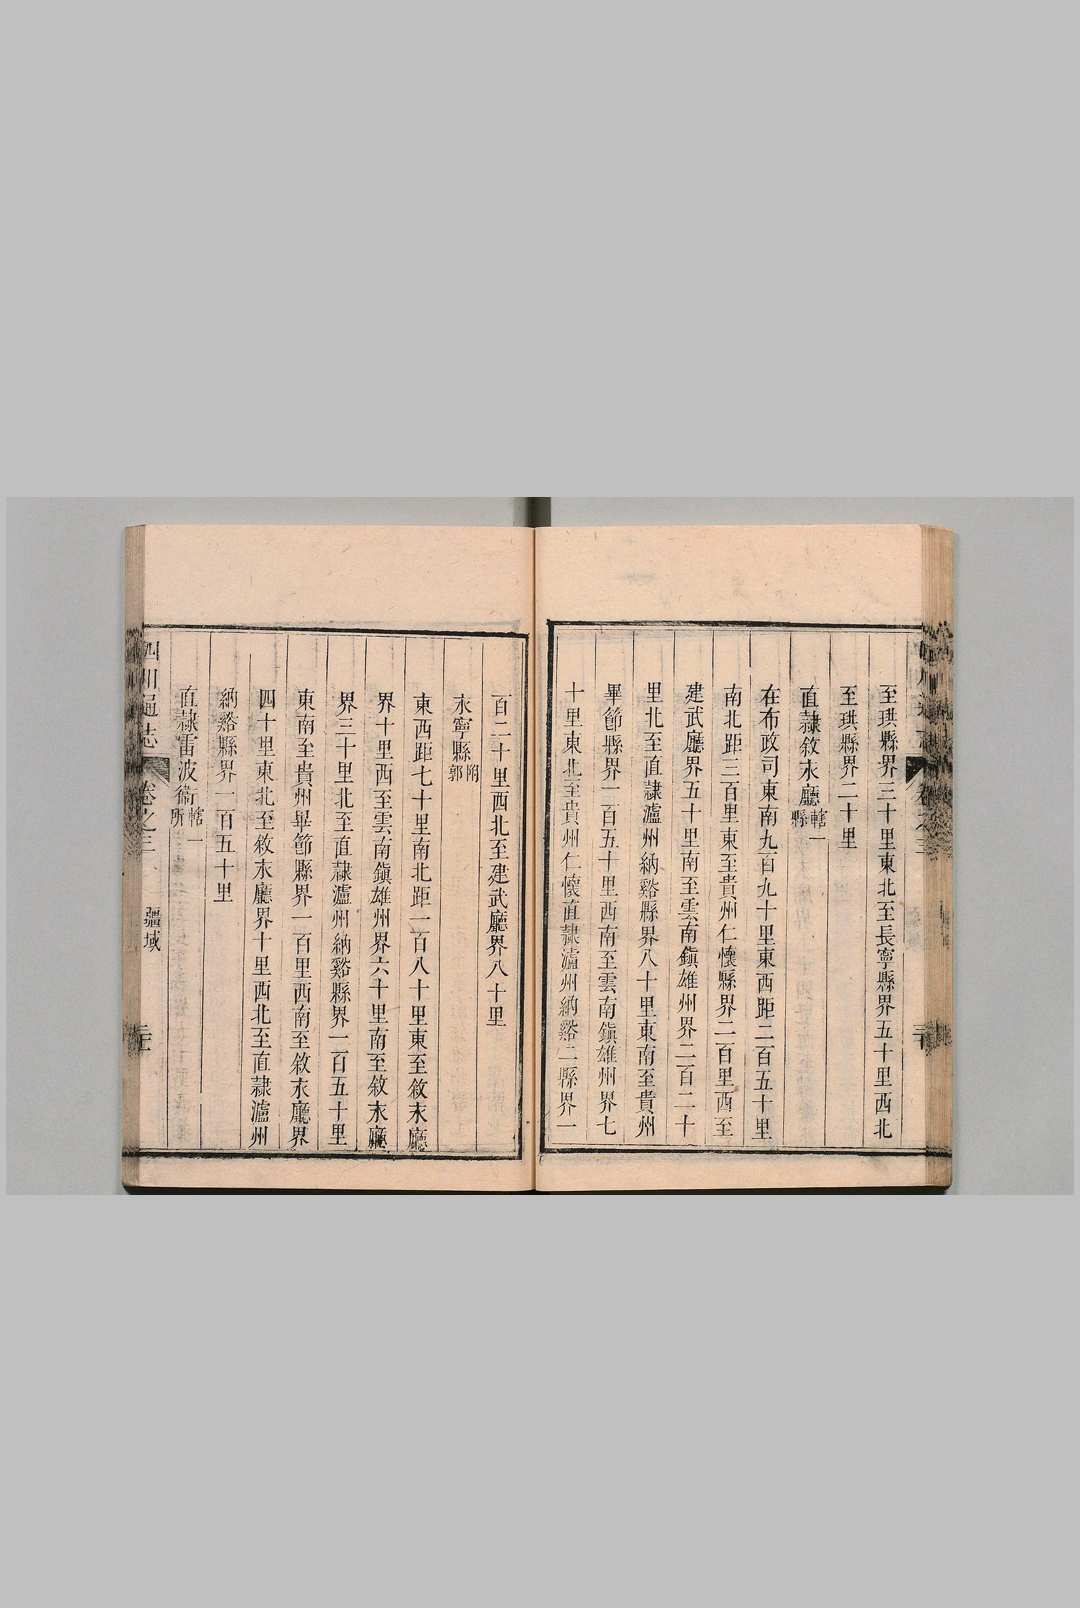 至珙縣界三十里東北至長寧縣界五十里西北
至珙縣界二十里
直隸敘永廳轄一縣
在布政司東南九百九十里東西距二百五十里
南北距三百里東至貴州仁懷縣界二百里西至
建武廳界五十里南至雲南鎮雄州界二百二十
里北至直隸瀘州納谿縣界八十里東南至貴州
畢節縣界一百五十里西南至雲南鎮雄州界七
十里東北至貴州仁懷直隸瀘州納谿二縣界一
百二十里西北至建武廳界八十里
永寧縣附郭
東西距七十里南北距一百八十里東至敘永廳
界十里西至雲南鎮雄州界六十里南至敘永廳
界三十里北至直隸瀘州納谿縣界一百五十里
東南至貴州畢節縣界一百里西南至敘永廳界
四十里東北至敘永廳界十里西北至直隸瀘州
納谿縣界一百五十里
直隸雷波衛轄一所
四川通志
卷之三
疆域